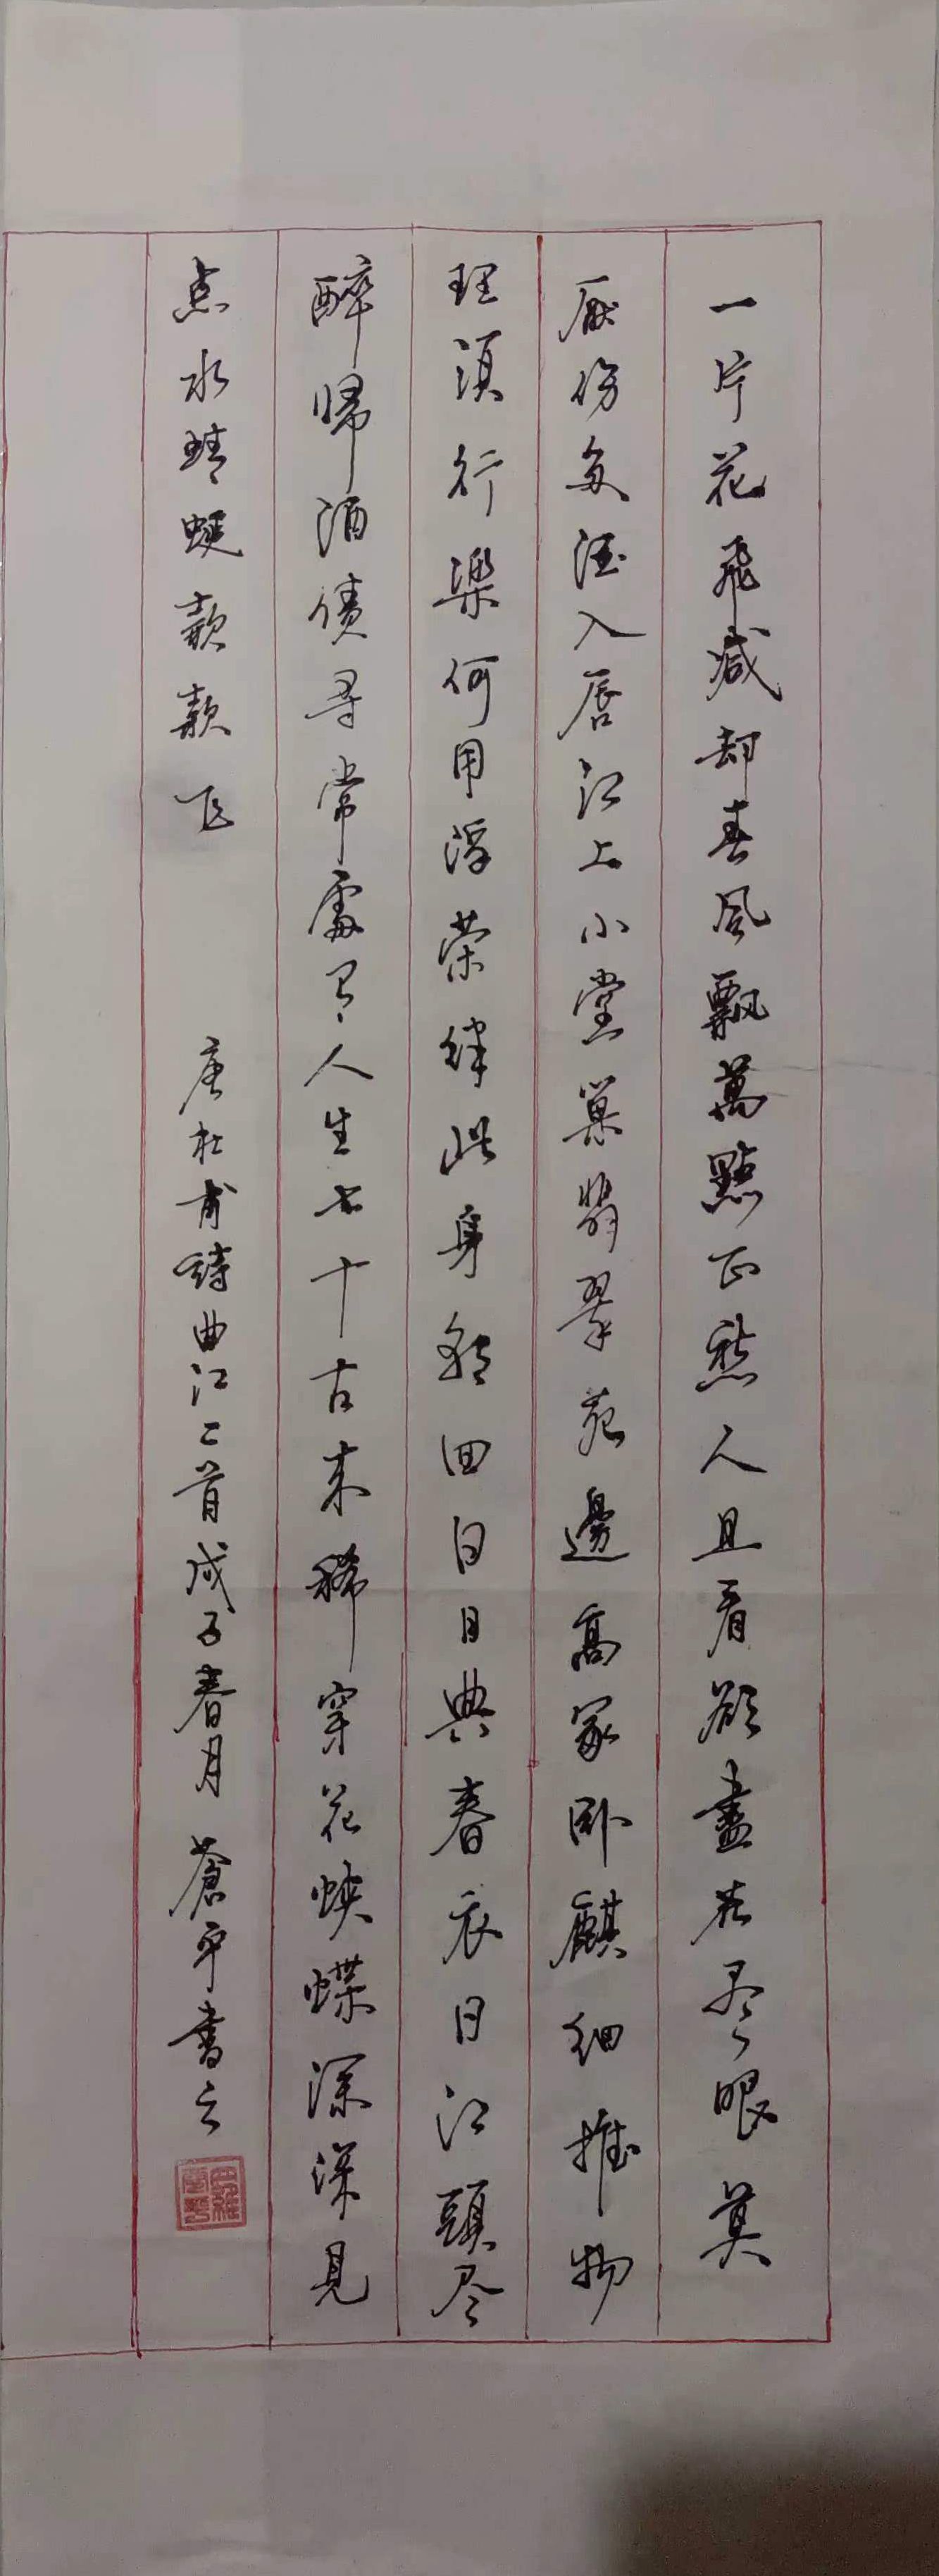 一片花飛减却春風飄萬點正愁人且看欲盡花尽眼莫
厭傷多酒入唇江上小堂巢翡翠苑邊高冢卧麒細推物
理須行樂何用浮荣絆此身朝回日日典春衣日江頭尽
醉歸酒债尋常處有人生七十古来稀穿花蛺蝶深深見
点水蜻蜓款款飞 唐杜甫詩曲江二首戊子春月 蒼平書之